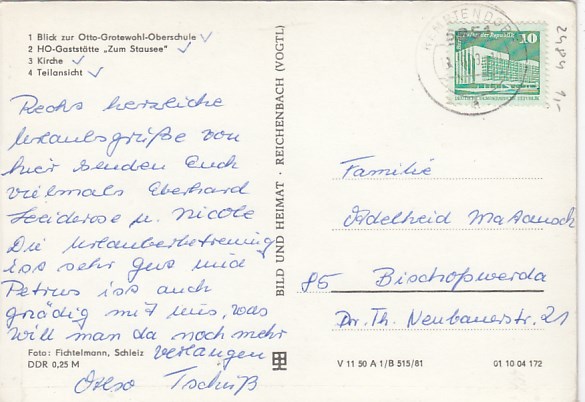 1 Blick zur Otto-Grotewohl-Oberschule
2 HO-Gaststätte „Zum Stausee"
3 Kirche
4 Teilansicht
Recht herzliche
Urlaubsgrüße von
hier senden Euch
vielmals Eberhard
Heiderose u. Nicole
Die Urlauberbetreuung
ist sehr gut und
Petrus ist auch
gnädig mit uns, was
will man da noch mehr
verlangen
Also Tschüß
Foto: Fichtelmann, Schleiz
DDR 0,25 M
BILD UND HEIMAT · REICHENBACH (VOGTL)
10
2484 1,-
Familie
Adelheid
85 Bischofswerda
Dr. Th. Neubauerstr. 21
V 11 50 A 1/B 515/81
01 10 04 172